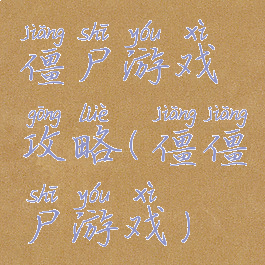 jiāng shī yóu xì
僵尸游戏
gōng lüè jiāng jiāng
攻略(僵僵
shī yóu xì
尸游戏)